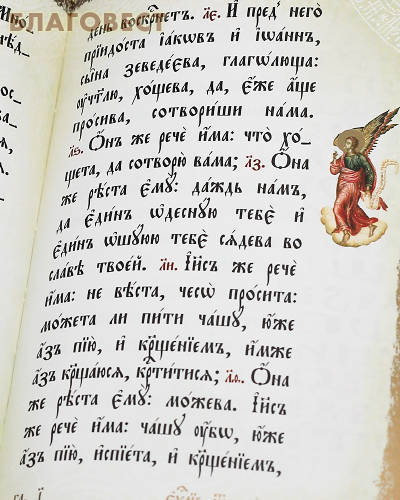 БЛАГОВЕСТ
день воскр҃нетъ. л҃е. И҆ пред̾ него̀
прїидо́ста і҆а́кѡвъ и҆ і҆ѡа́ннъ,
сы̑на зеведе́ѡва, глаго́люща:
ᲂу҆чт҃лю, хо́щева, да, є҆́же а҆́ще
про́сива, сотвори́ши на́ма.
л҃ѕ. Ѻ҆́нъ же речѐ и҆́ма: что̀ хо́-
щета, да сотворю̀ ва́ма; л҃з. Ѡ҆́на
же рѣ́ста є҆мꙋ̀: да́ждь на́мъ,
да є҆ди́нъ ѡ҆деснꙋ́ю тебє̀ и҆
є҆ди́нъ ѡ҆шꙋ́юю тебє̀ сѧ́дева во
сла́вѣ твое́й. л҃и. І҆и҃съ же речѐ
и҆́ма: не вѣ́ста, чесѡ̀ про́сита:
мо́жета ли пи́ти ча́шꙋ, ю҆́же
а҆́зъ пїю̀, и҆ кр҃ще́нїемъ, и҆́мже
а҆́зъ кр҃ща́юсѧ, кр҃ти́тисѧ; л҃ѳ. Ѡ҆́на
же рѣ́ста є҆мꙋ̀: мо́жева. І҆и҃съ
же речѐ и҆́ма: ча́шꙋ ᲂу҆́бѡ, ю҆́же
а҆́зъ пїю̀, и҆спїе́та, и҆ кр҃ще́нїемъ,